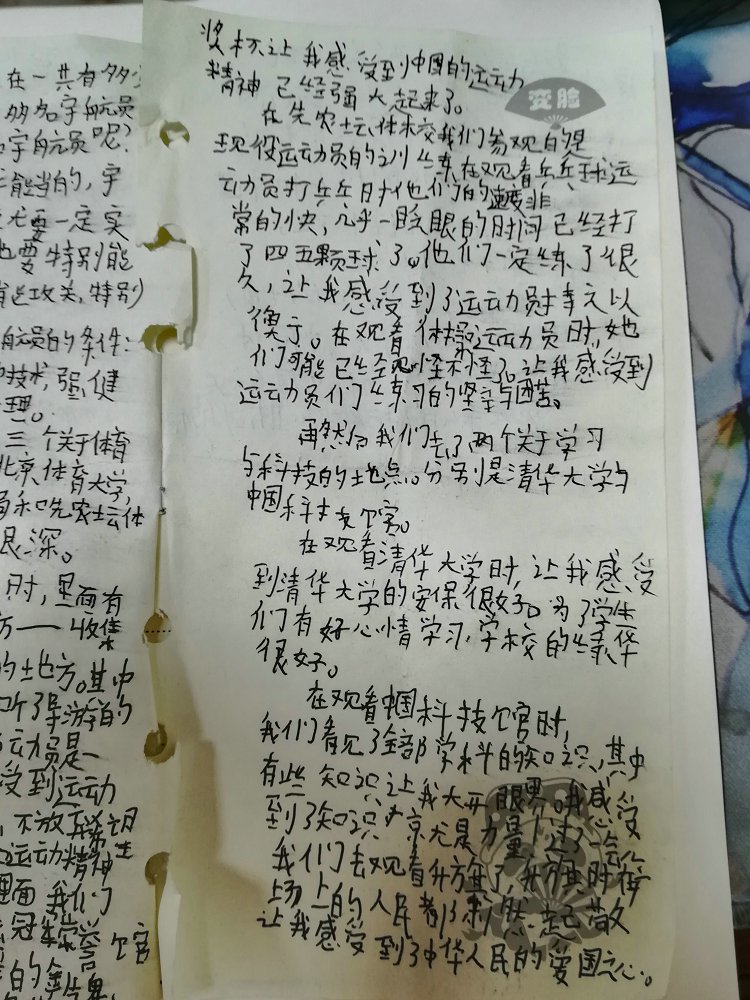 在一共有多少
多加宇航员
宇航员呢?
能当的,宇
要一定实
也要特别能
能攻关,特别
航员的条件:
技术,强健
理。
三个关于体育
北京体育大学,
和先农坛体
很深。
时,里面有
方——收集
的地方。其中
听了导游的
运动员是一
受到运动
不放弃
运动精神
里面我们
冠军荣誉馆
的
奖杯让我感受到中国的运动
精神已经强大起来了。
变脸
在先农坛体校我们参观的是
现役运动员的训练在观看乒乓球运
动员打乒乓时他们的速度非
常的快,几乎一眨眼的时间已经打
了四五颗球了。他们一定练了很
久,让我感受到了运动员持之以
恒。在观看体操运动员时,她
们可能已经见怪不怪了。让我感受到
运动员们练习的坚辛与困苦。
再然后我们去了两个关于学习
与科技的地点。分别是清华大学与
中国科技馆。
在观看清华大学时,让我感受
到清华大学的安保很好。为了学生
们有好心情学习,学校的绿华
很好。
在观看中国科技馆时,
我们看见了全部学科的知识,其中
有些知识让我大开眼界。我感受
到了知识就是力量。过了一会
我们去观看升旗了,升旗时
场上的人民都肃然起敬
让我感受到了中华人民的爱国之心。